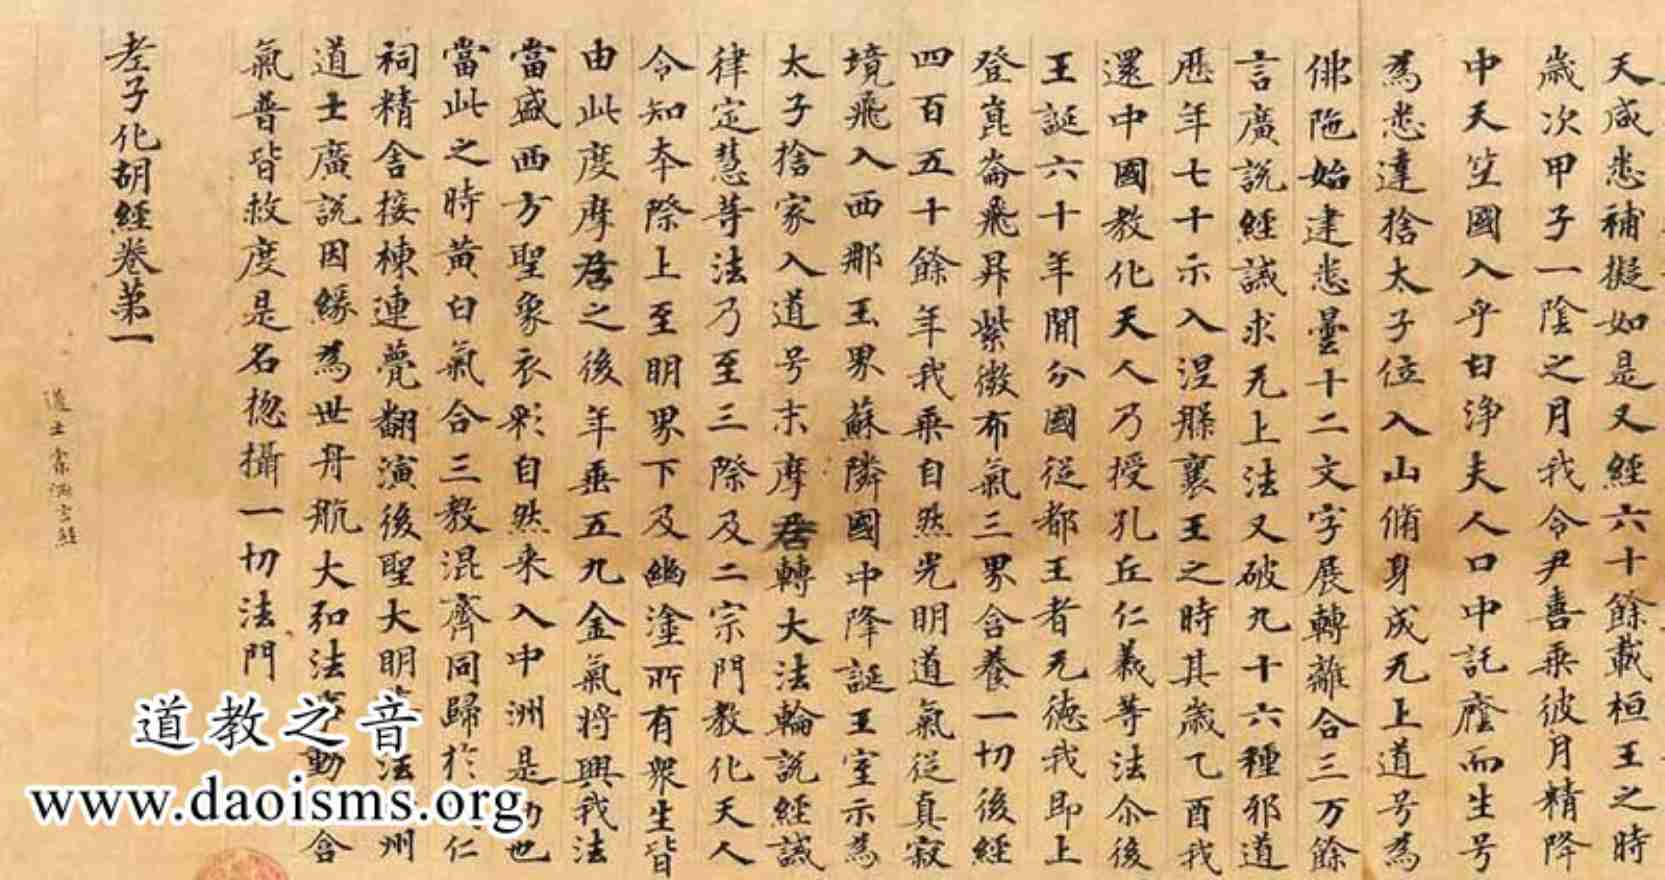 天咸悉補擬如是又經六十餘載桓王之時
歲次甲子一陰之月我令尹喜乘彼月精降
中天竺國入乎白淨夫人口中託廕而生号
為悉達捨太子位入山脩身成无上道号為
佛陁始建悉曇十二文字展轉離合三万餘
言廣說經誡求无上法又破九十六種邪道
歷年七十示入涅槃襄王之時其歲乙酉我
還中國教化天人乃授孔丘仁義等法尒後
王誕六十年間分國從都王者无德我即上
登崑崙飛昇紫微布氣三界含養一切後經
四百五十餘年我乘自然光明道氣從真寂
境飛入西那玉界蘇隣國中降誕王室示為
太子捨家入道号末摩尼轉大法輪說經誡
律定慧等法乃至三際及二宗門教化天人
令知本際上至明界下及幽塗所有衆生皆
由此度摩尼之後年垂五九金氣將興我法
當盛西方聖象衣彩自然来入中洲是効也
當此之時黄白氣合三教混齊同歸於仁
祠精舍接棟連甍翻演後聖大明法州
道士廣說因緣為世舟航大弘法動含
氣普皆救度是名揔攝一切法門
老子化胡經卷第一
道士索洞玄經
道教之音
www.daoisms.org